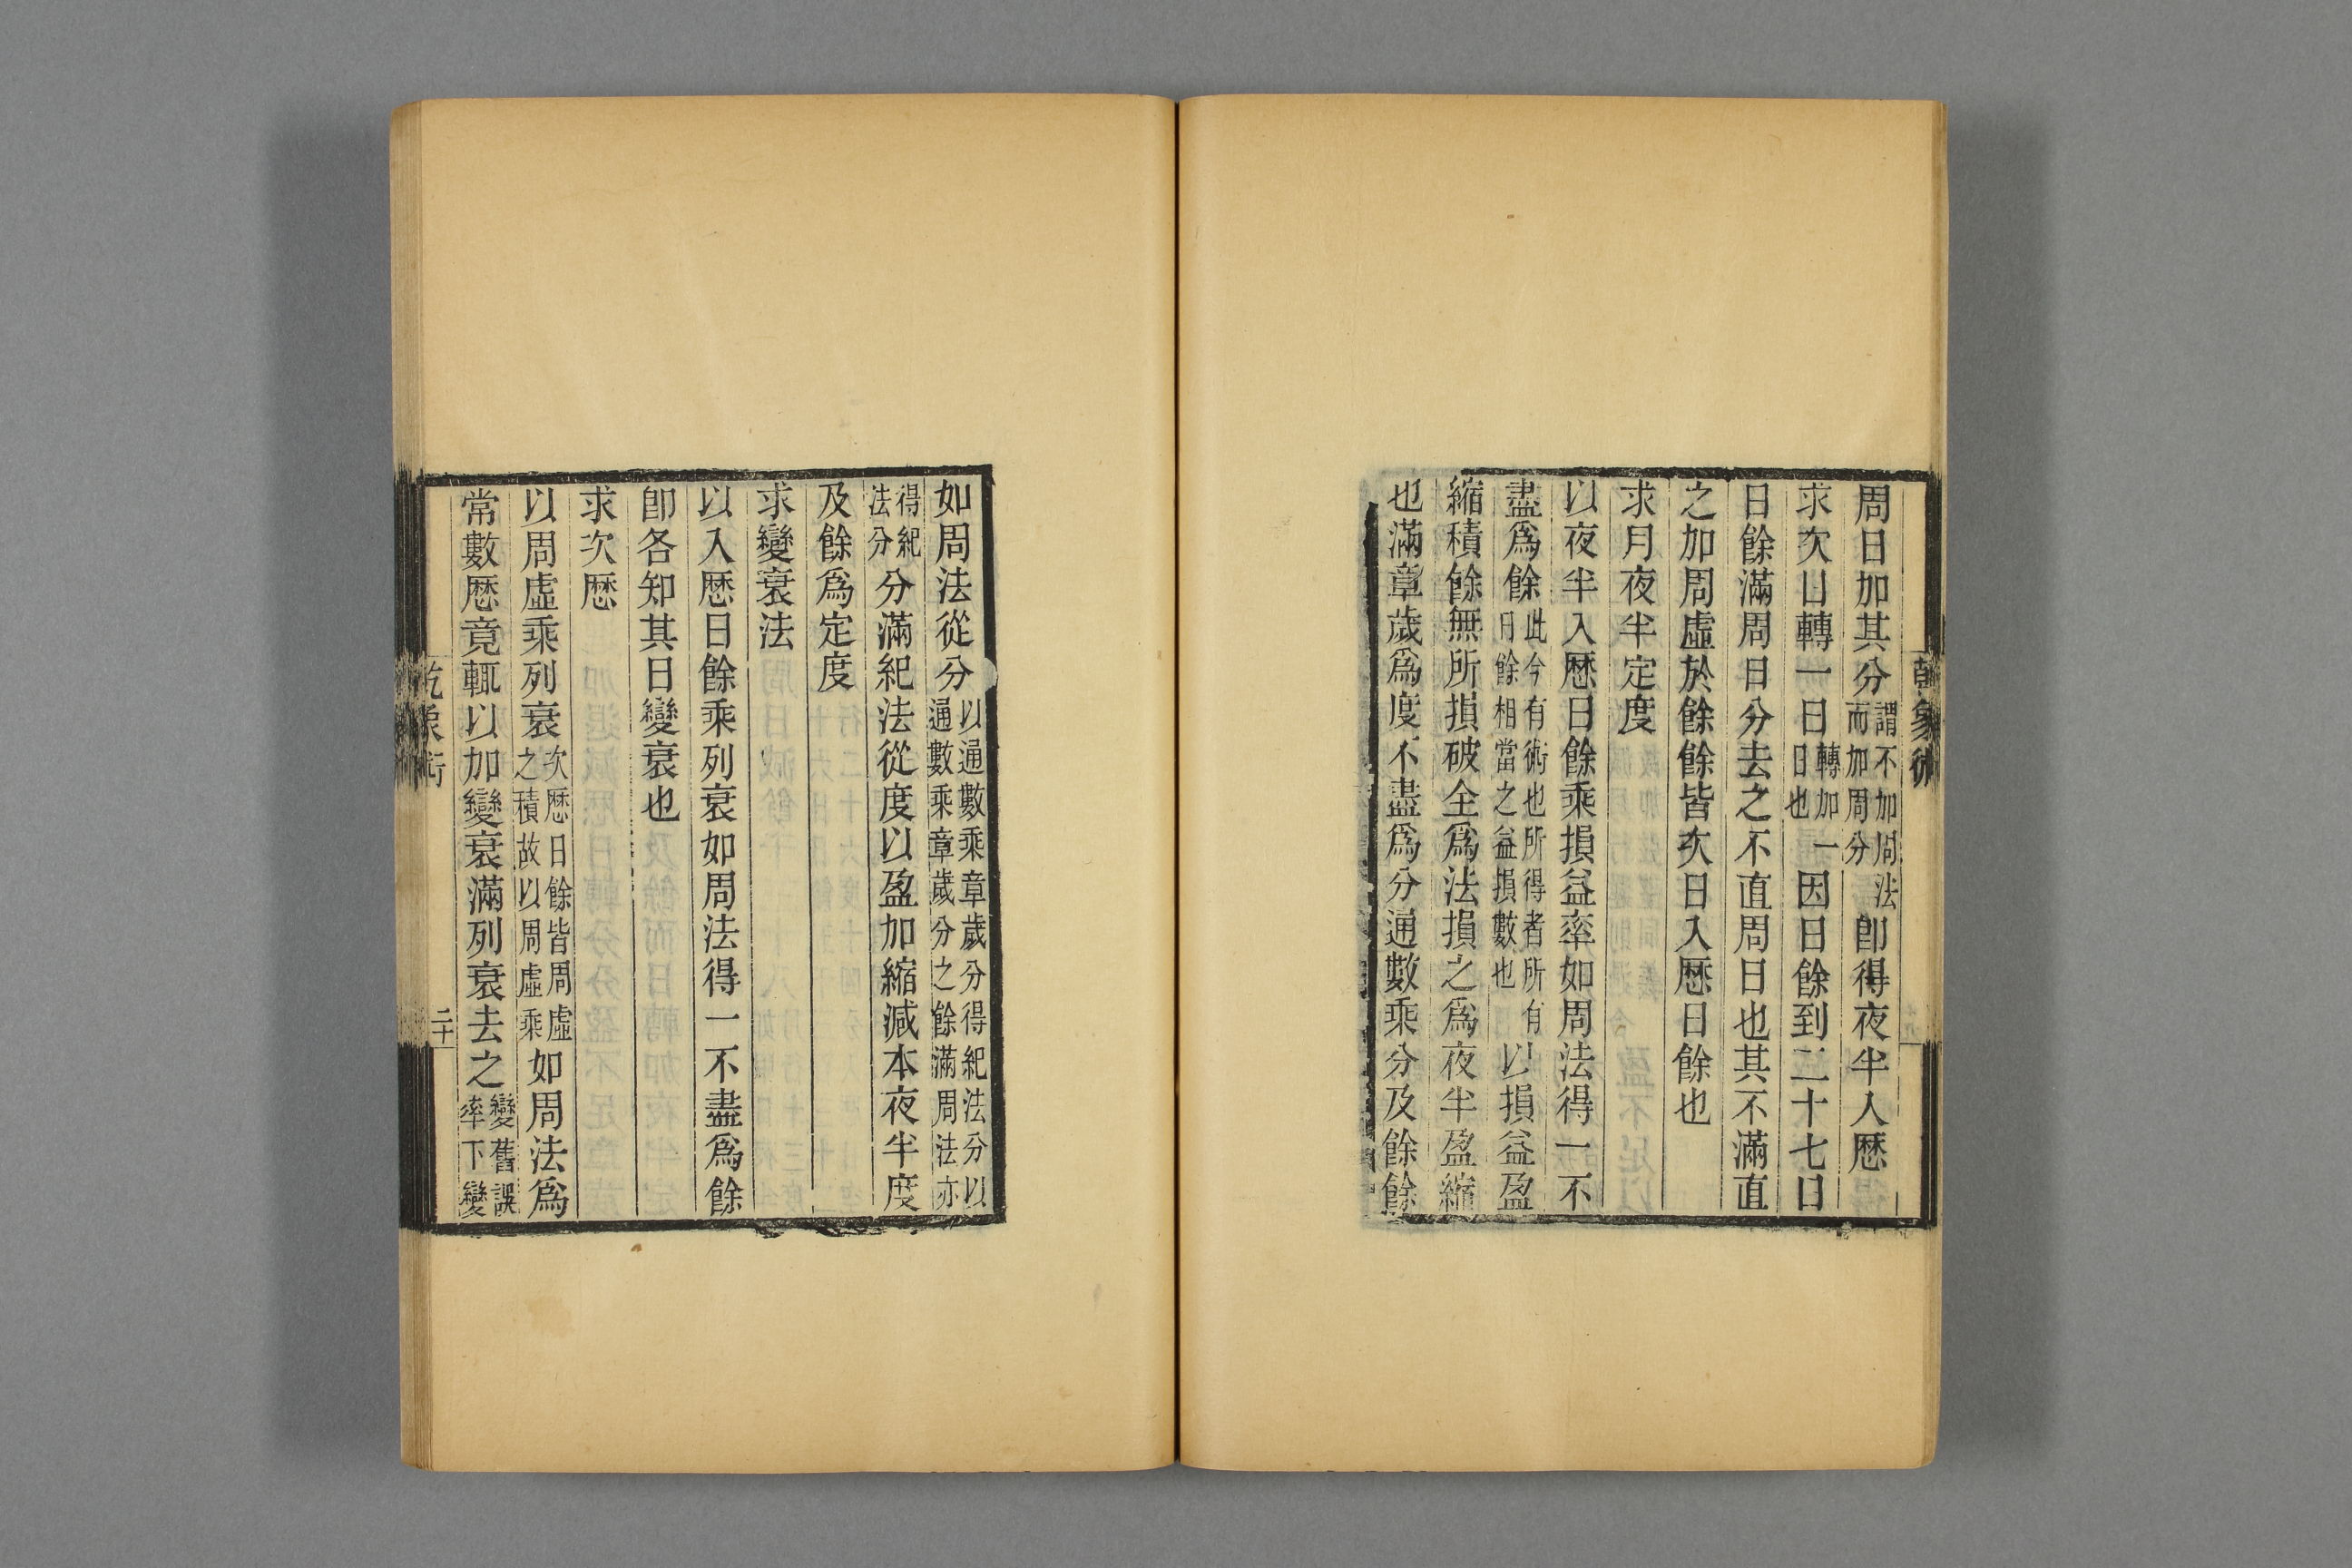 周日加其分謂不加周法而加周分卽得夜半入厯
求次日轉一日轉加一日也因日餘到二十七日
日餘滿周日分去之不直周日也其不滿直
之加周虛於餘餘皆次日入厯日餘也
求月夜半定度
以夜半入厯日餘乘損益率如周法得一不
盡爲餘此今有術也所得者所有日餘相當之益損數也以損益盈
縮積餘無所損破全爲法損之爲夜半盈縮
也滿章歲爲度不盡爲分通數乘分及餘餘
如周法從分以通數乘章歲分得紀法分以通數乘章歲分之餘滿周法亦
得紀法分分滿紀法從度以盈加縮減本夜半度
及餘爲定度
求變衰法
以入厯日餘乘列衰如周法得一不盡爲餘
卽各知其日變衰也
求次厯
以周虛乘列衰次厯日餘皆周虛之積故以周虛乘如周法爲
常數厯竟輒以加變衰滿列衰去之變舊誤率下變
乾象術
二十